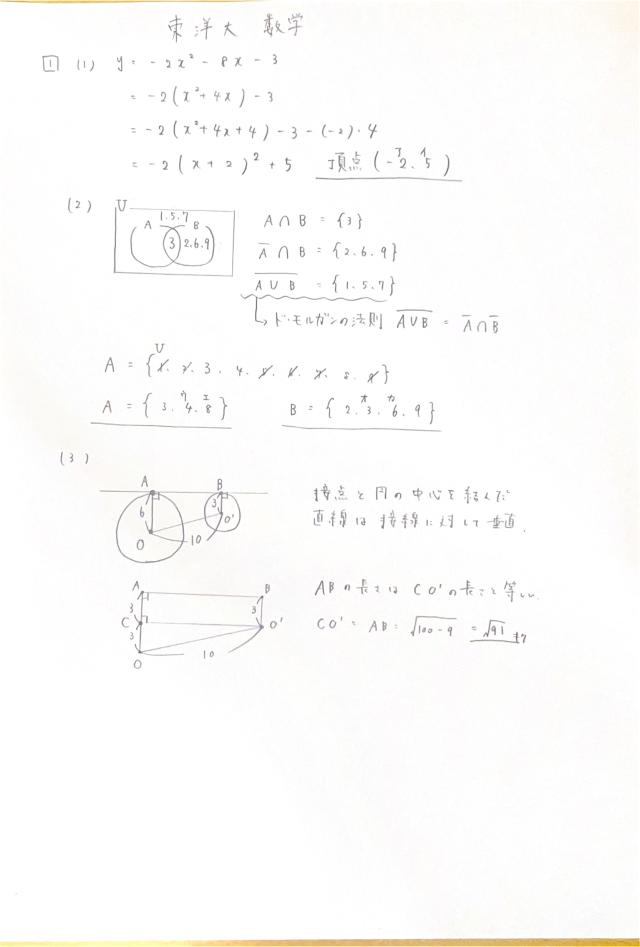 東洋大 数学
1 (1) y = -2x² - 8x - 3
= -2(x² + 4x) - 3
= -2(x² + 4x + 4) - 3 - (-2)・4
= -2(x + 2)² + 5 頂点 (-2, 5)
ア イ
(2)
U
1.5.7
A B
3 2.6.9
A ∩ B = {3}
A̅ ∩ B = {2.6.9}
A̅ ̅∪̅ ̅B̅ = {1.5.7}
→ ド・モルガンの法則 A̅ ̅∪̅ ̅B̅ = A̅ ∩ B̅
U
A = {1. 2. 3. 4. 5. 6. 7. 8. 9}
ウ エ オ カ
A = {3. 4. 8} B = {2. 3. 6. 9}
(3)
A B
6 3
O O' 10
接点と円の中心を結んだ
直線は接線に対して垂直.
A B
3 3
C O'
3
O 10
ABの長さは CO'の長さと等しい.
CO' = AB = √100-9 = √91
キク